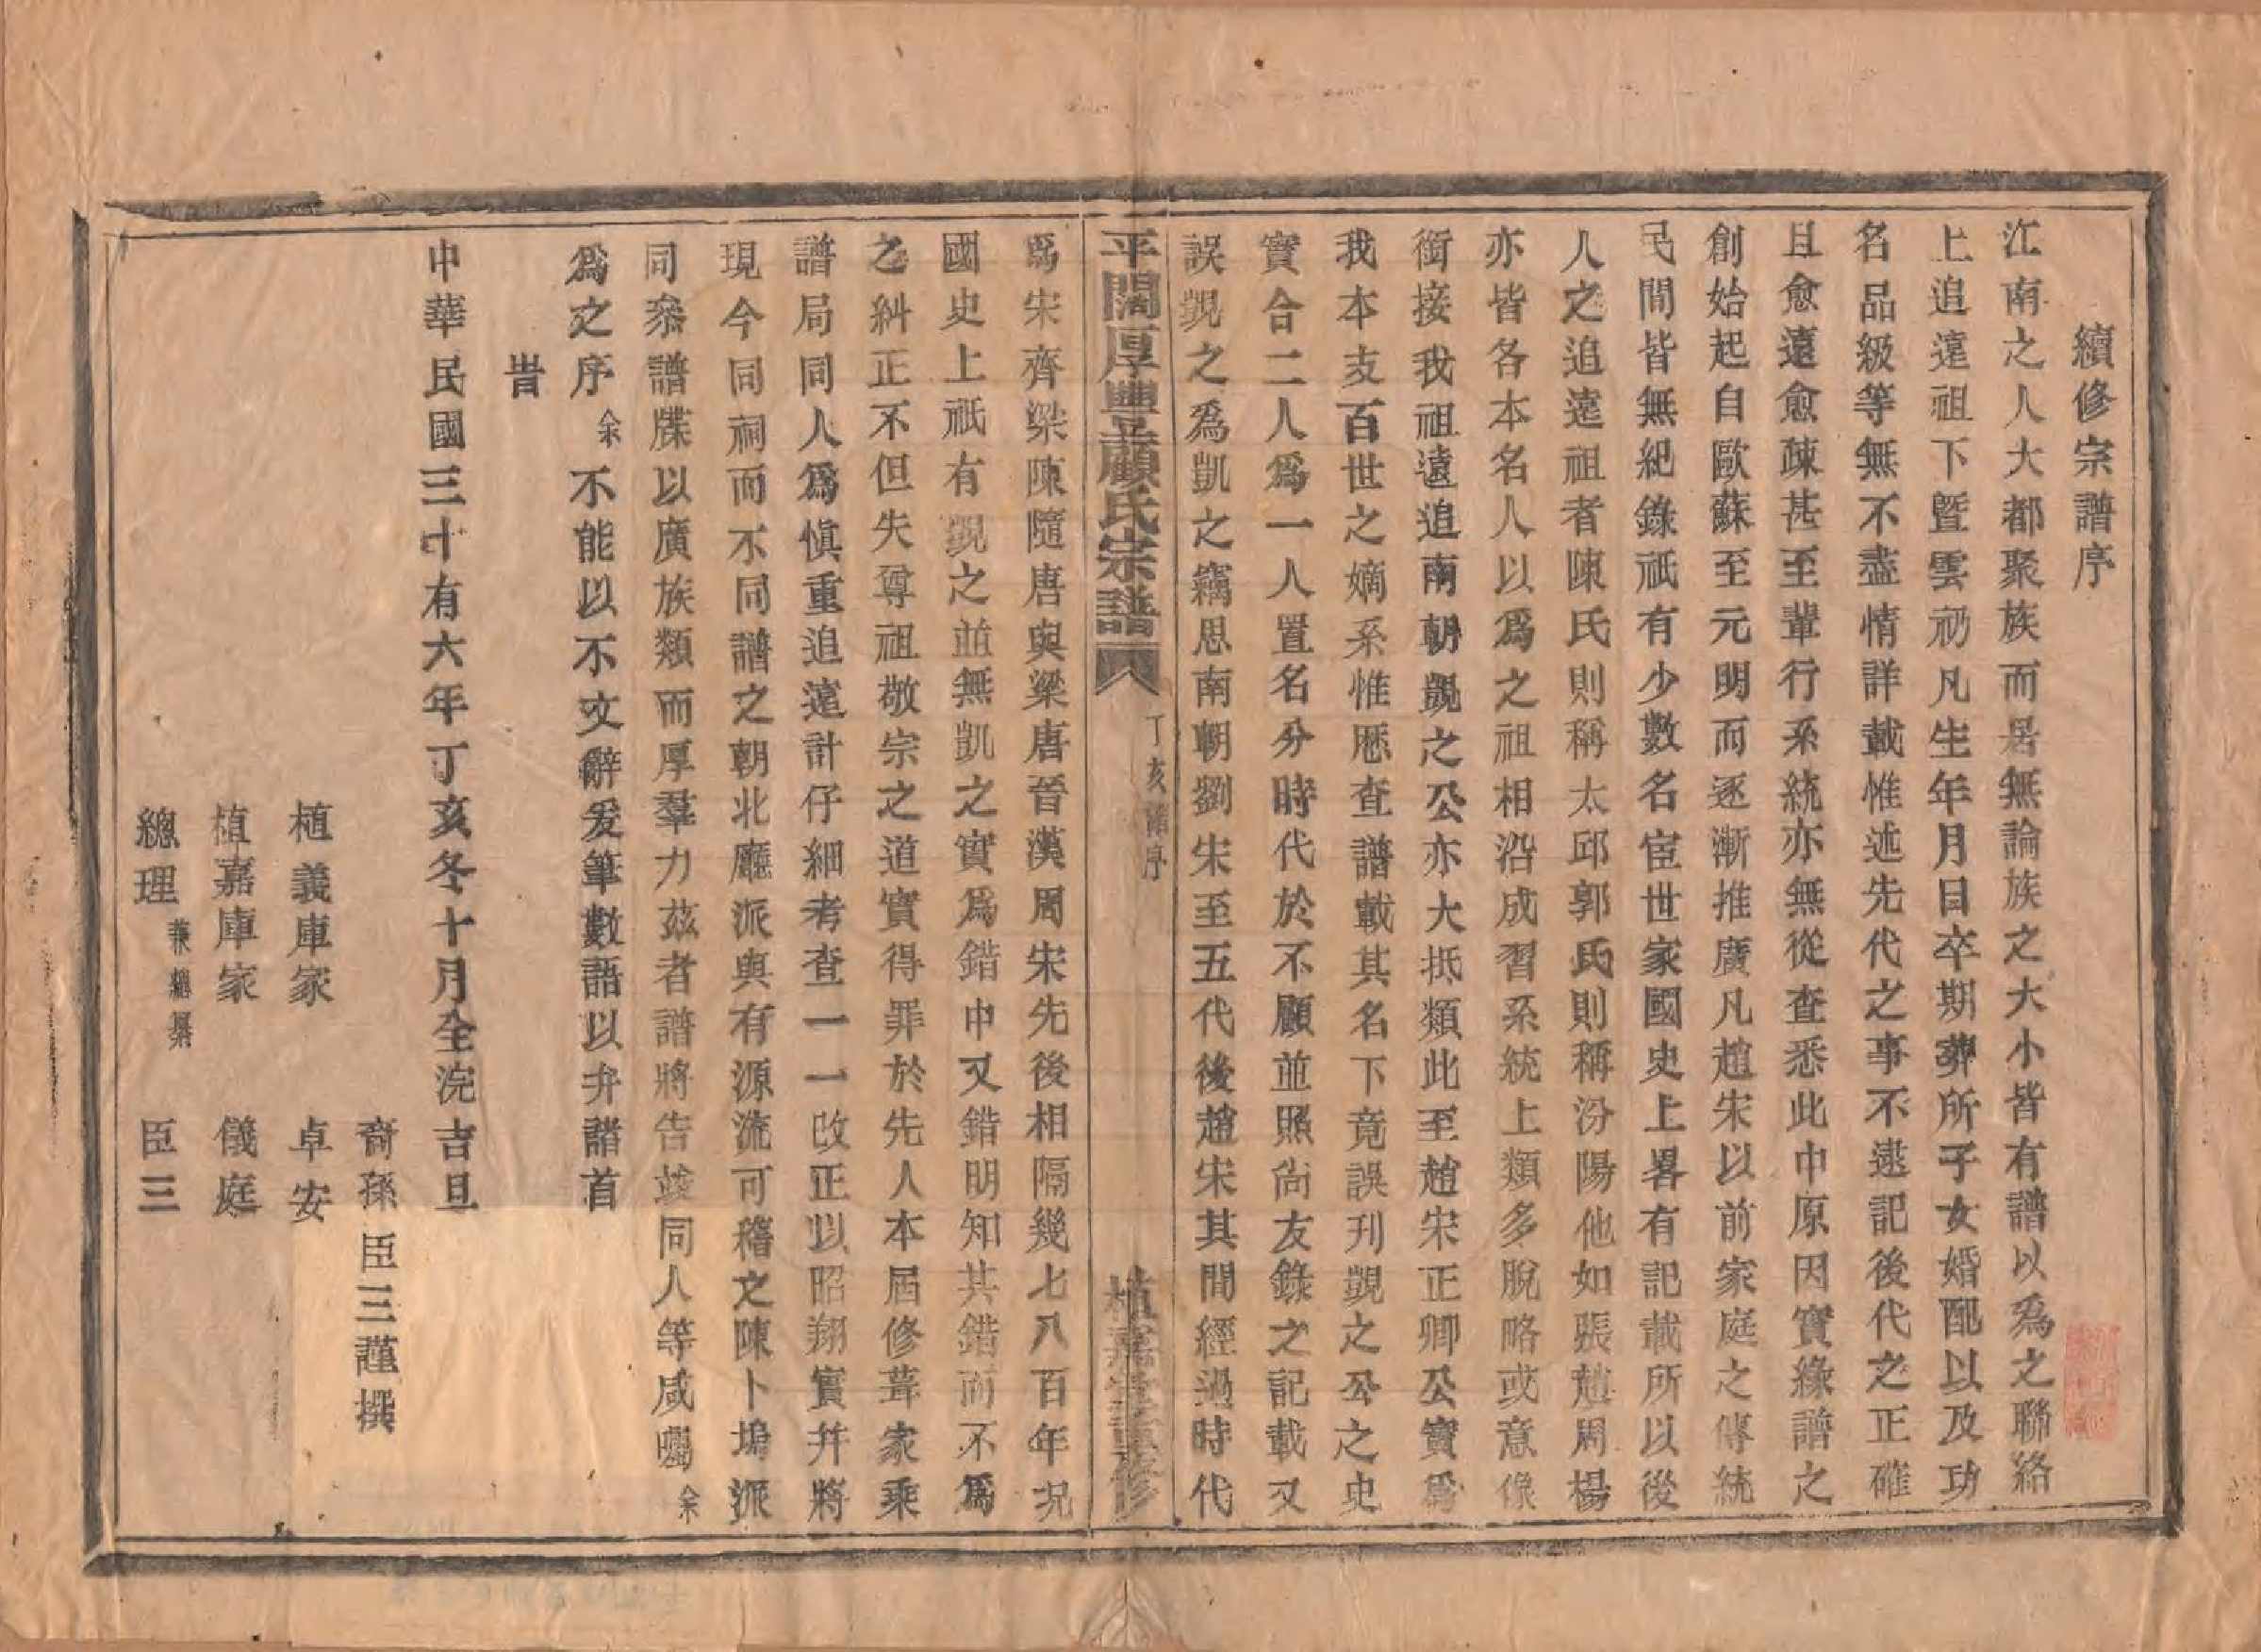 續修宗譜序
江南之人大都聚族而居無論族之大小皆有譜以爲之聯絡
上追遠祖下暨雲礽凡生年月日卒期葬所子女婚配以及功
名品級等無不盡情詳載惟述先代之事不逮記後代之正確
且愈遠愈疎甚至輩行系統亦無從查悉此中原因實緣譜之
創始起自歐蘇至元明而逐漸推廣凡趙宋以前家庭之傳統
民間皆無紀錄祇有少數名宦世家國史上畧有記載所以後
人之追遠祖者陳氏則稱太邱郭氏則稱汾陽他如張趙周楊
亦皆各本名人以爲之祖相沿成習系統上類多脫略或意像
銜接我祖遠追南朝覬之公亦大抵類此至趙宋正卿公實爲
我本支百世之嫡系惟歷查譜載其名下竟誤刊覬之公之史
實合二人爲一人置名分時代於不顧並照尙友錄之記載又
誤覬之爲凱之竊思南朝劉宋至五代後趙宋其間經過時代
平閣厚豐顧氏宗譜
丁亥譜序
植嘉堂重修
爲宋齊梁陳隨唐與梁唐晉漢周宋先後相隔幾七八百年况
國史上祇有覬之並無凱之實爲錯中又錯明知其錯而不爲
之糾正不但失尊祖敬宗之道實得罪於先人本屆修葺家乘
譜局同人爲愼重追遠計仔細考查一一改正以昭翔實幷將
現今同祠而不同譜之朝北廳派與有源流可稽之陳卜塢派
同叅譜牒以廣族類而厚羣力茲者譜將告竣同人等咸囑余
爲之序余不能以不文辭爰筆數語以弁諸首
旹
中華民國三十有六年丁亥冬十月全浣吉旦
裔孫臣三謹撰
植義庫家 卓安
植嘉庫家 儀庭
總理兼總纂 臣三